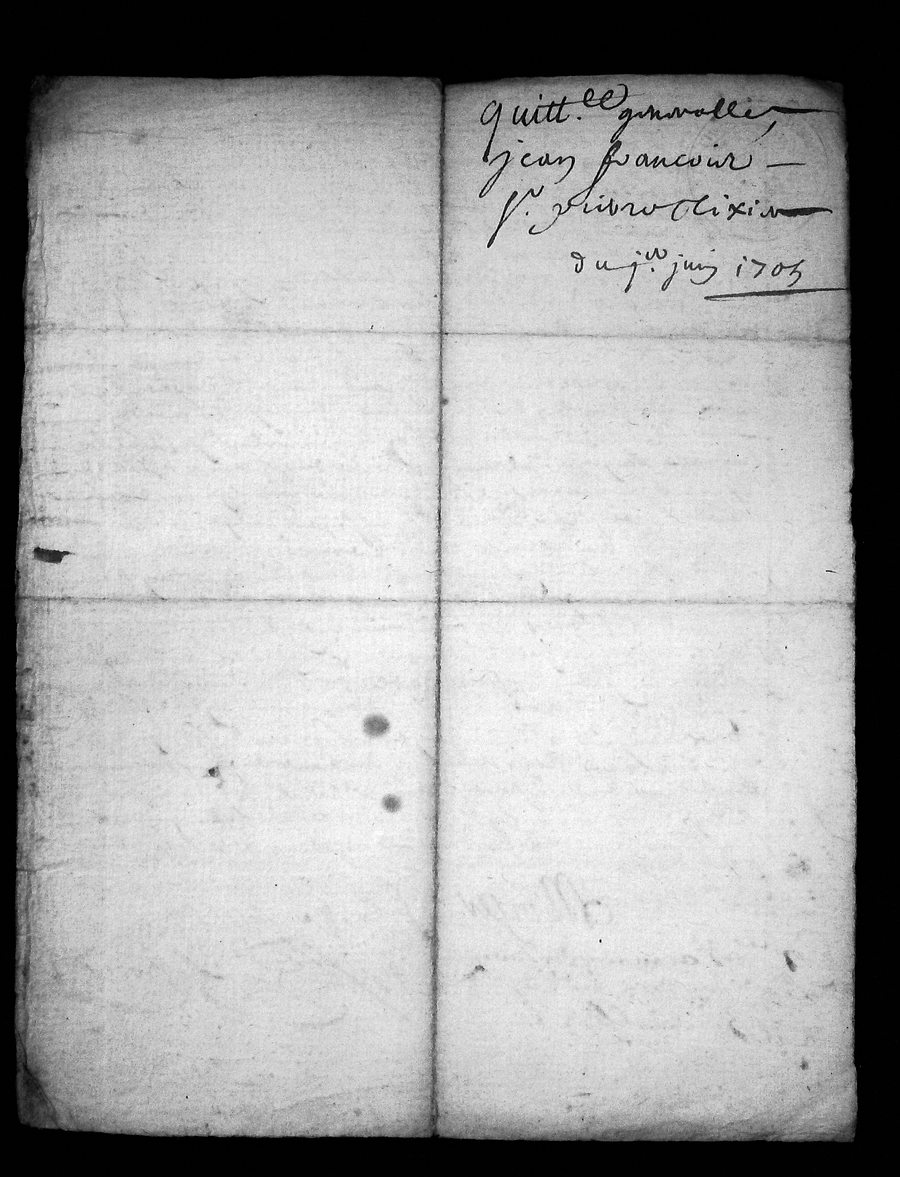 quitt.ce generalle
jean francoir
Sr. pierre Clixin
du jer. juin 1705